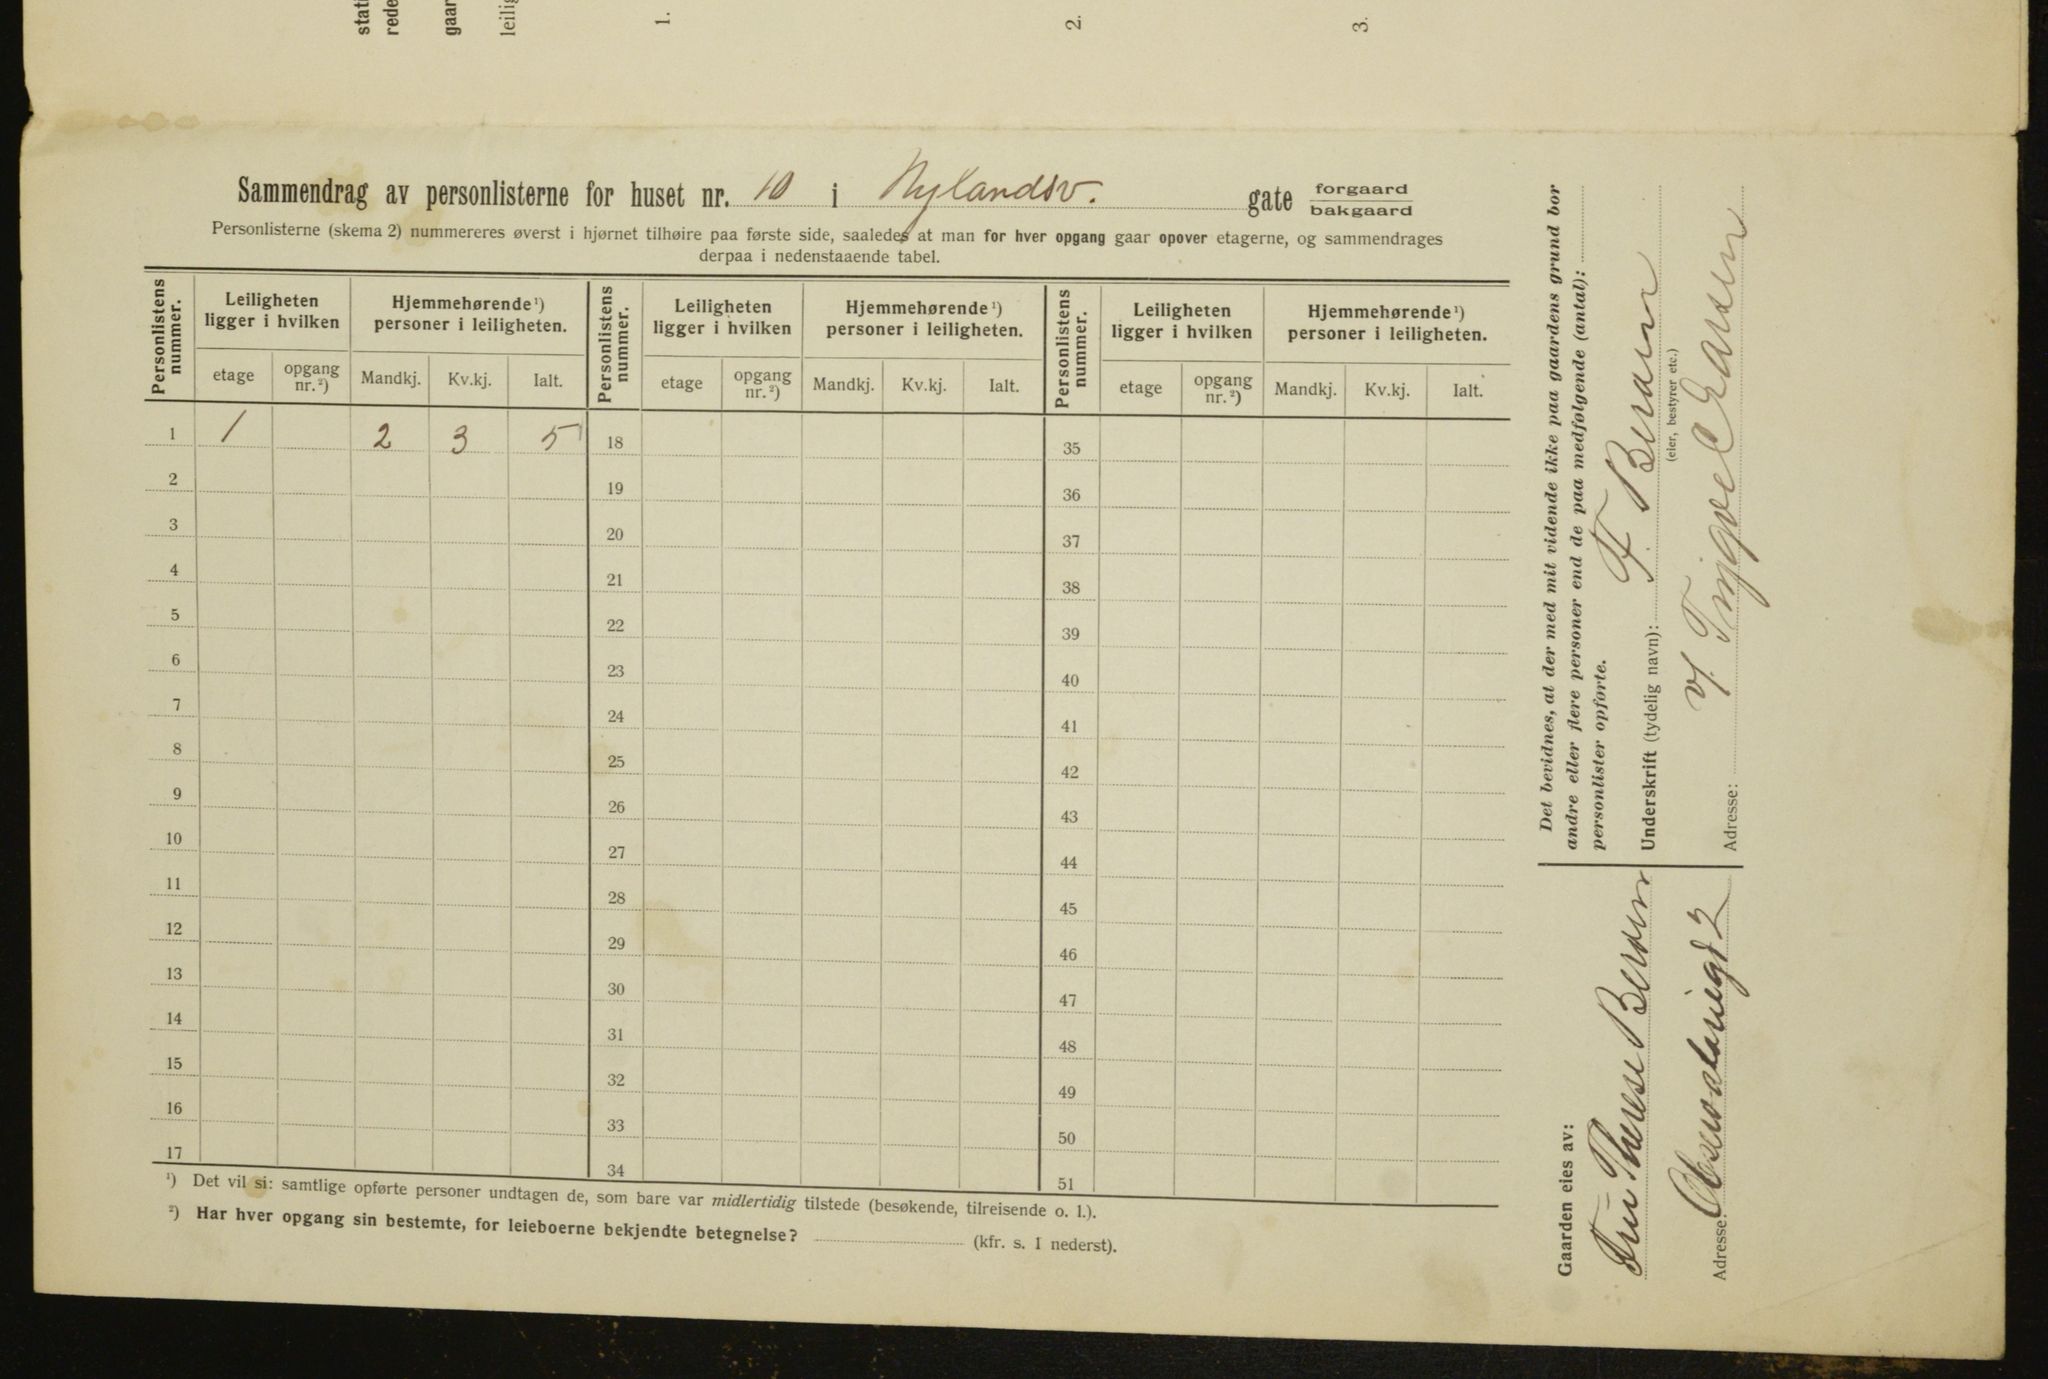 stati
rede
gaar
leilig
1.
2.
3.
Sammendrag av personlisterne for huset nr. 10 i Nylandsv. gate forgaard
bakgaard
Personlisterne (skema 2) nummereres øverst i hjørnet tilhøire paa første side, saaledes at man for hver opgang gaar opover etagerne, og sammendrages
derpaa i nedenstaaende tabel.
Personlistens nummer. Leiligheten ligger i hvilken Hjemmehørende ¹) personer i leiligheten. Personlistens nummer. Leiligheten ligger i hvilken Hjemmehørende ¹) personer i leiligheten. Personlistens nummer. Leiligheten ligger i hvilken Hjemmehørende ¹) personer i leiligheten.
etage opgang nr. ²) Mandkj. Kv.kj. Ialt. etage opgang nr. ²) Mandkj. Kv.kj. Ialt. etage opgang nr. ²) Mandkj. Kv.kj. Ialt.
1 1 2 3 5 18 35
2 19 36
3 20 37
4 21 38
5 22 39
6 23 40
7 24 41
8 25 42
9 26 43
10 27 44
11 28 45
12 29 46
13 30 47
14 31 48
15 32 49
16 33 50
17 34 51
¹) Det vil si: samtlige opførte personer undtagen de, som bare var midlertidig tilstede (besøkende, tilreisende o. l.).
²) Har hver opgang sin bestemte, for leieboerne bekjendte betegnelse? (kfr. s. I nederst).
Det bevidnes, at der med mit vidende ikke paa gaardens grund bor
andre eller flere personer end de paa medfølgende (antal):
personlister opførte.
Underskrift (tydelig navn): F.
(eier, bestyrer etc.)
v/.
Adresse:
Gaarden eies av:
Fru Therese
Adresse: 2